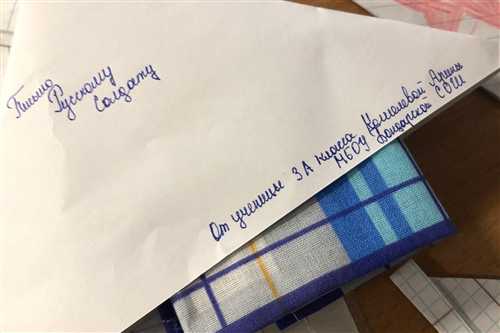 Письмо
Русскому
Солдату
От ученицы 3А класса Кошелевой Арины
МБОУ Бондарской СОШ